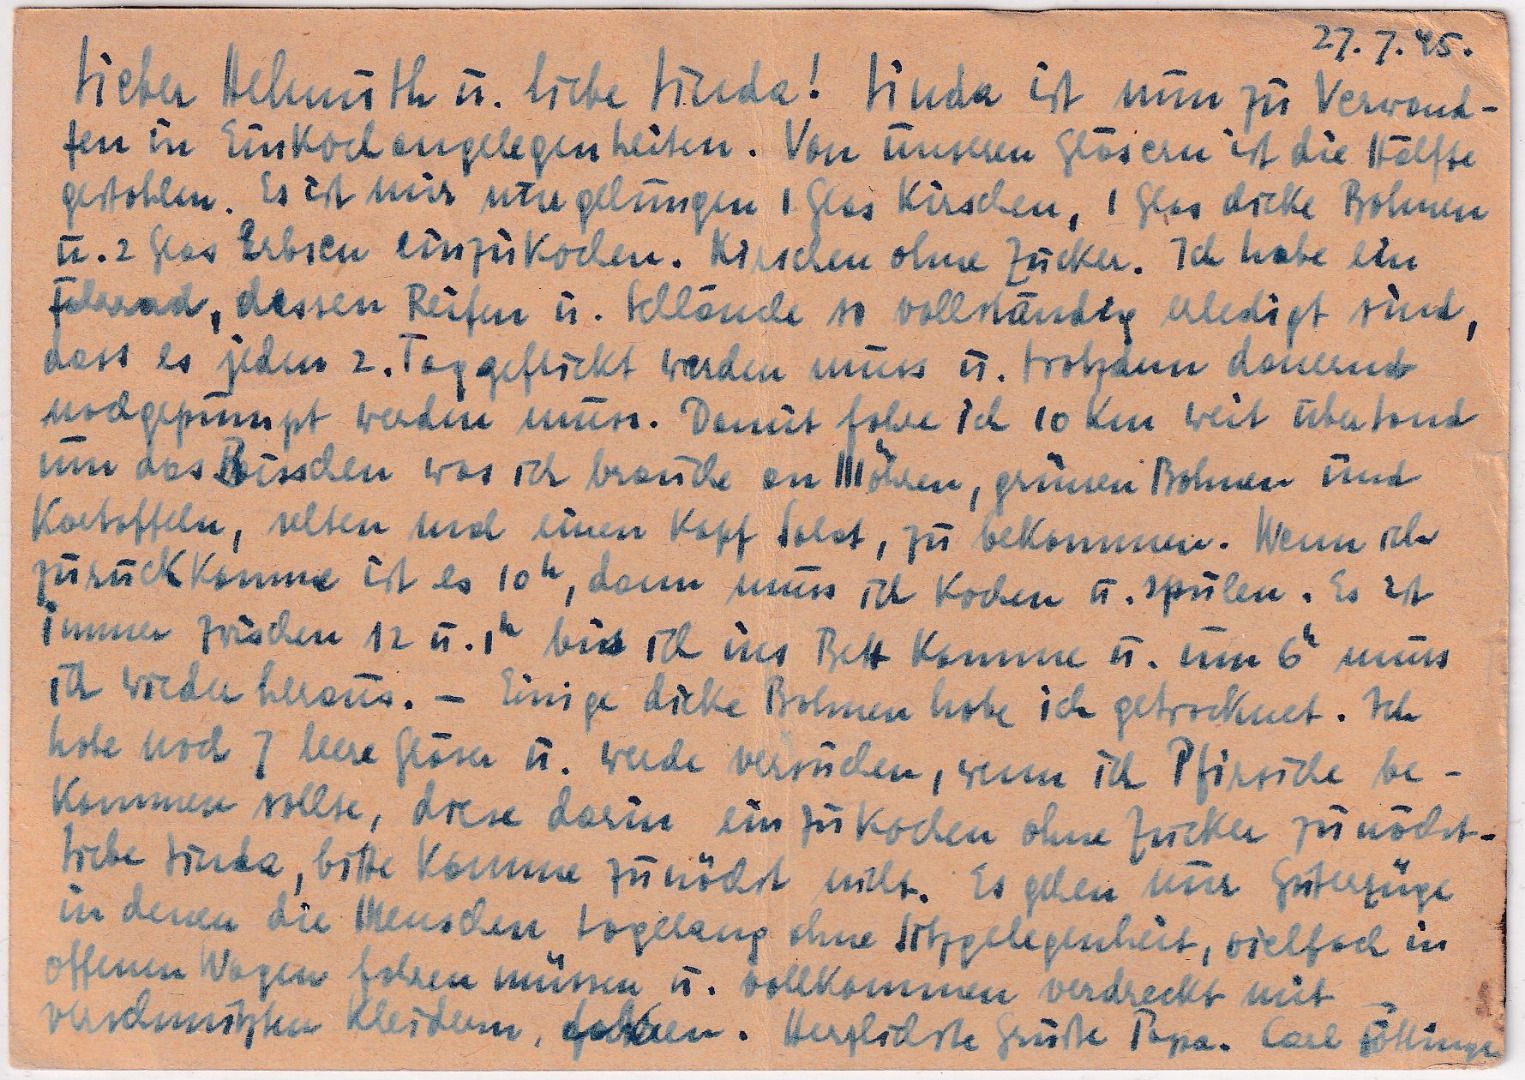 27.7.45.
Lieber Helmuth u. liebe Linda! Linda ist nun zu Verwand-
ten in Einkochangelegenheiten. Von unseren Gläsern ist die Hälfte
gestohlen. Es ist mir nur gelungen 1 Glas Kirschen, 1 Glas dicke Bohnen
u. 2 Glas Erbsen einzukochen. Kirschen ohne Zucker. Ich habe ein
Fahrrad, dessen Reifen u. Schläuche so vollständig erledigt sind,
dass es jeden 2. Tag geflickt werden muss u. trotzdem dauernd
nachgepumpt werden muss. Damit fahre ich 10 Km weit überland
um das Bisschen was ich brauche an Möhren, grünen Bohnen und
Kartoffeln, selten mal einen Kopf Salat, zu bekommen. Wenn ich
zurückkomme ist es 10h, dann muss ich kochen u. spülen. Es ist
immer zwischen 12 u. 1h bis ich ins Bett komme u. um 6h muss
ich wieder heraus. – Einige dicke Bohnen habe ich getrocknet. Ich
habe noch 7 leere Gläser u. werde versuchen, wenn ich Pfirsiche be-
kommen sollte, diese darin einzukochen ohne Zucker zunächst-
Liebe Linda, bitte komme zunächst nicht. Es gehen nur Güterzüge
in denen die Menschen tagelang ohne Sitzgelegenheit, vielfach in
offenen Wagen fahren müssen u. vollkommen verdreckt mit
verschmutzten Kleidern, . Herzlichste Grüße Papa. Carl